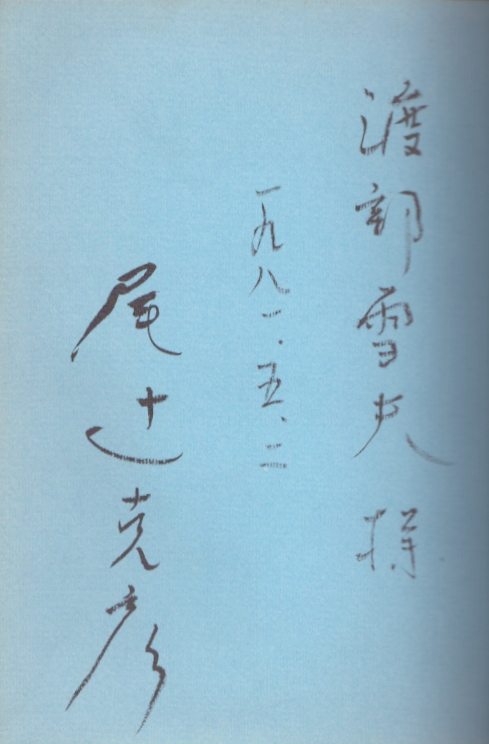 渡部雪夫様
一九八一、五、二
尾辻克彦